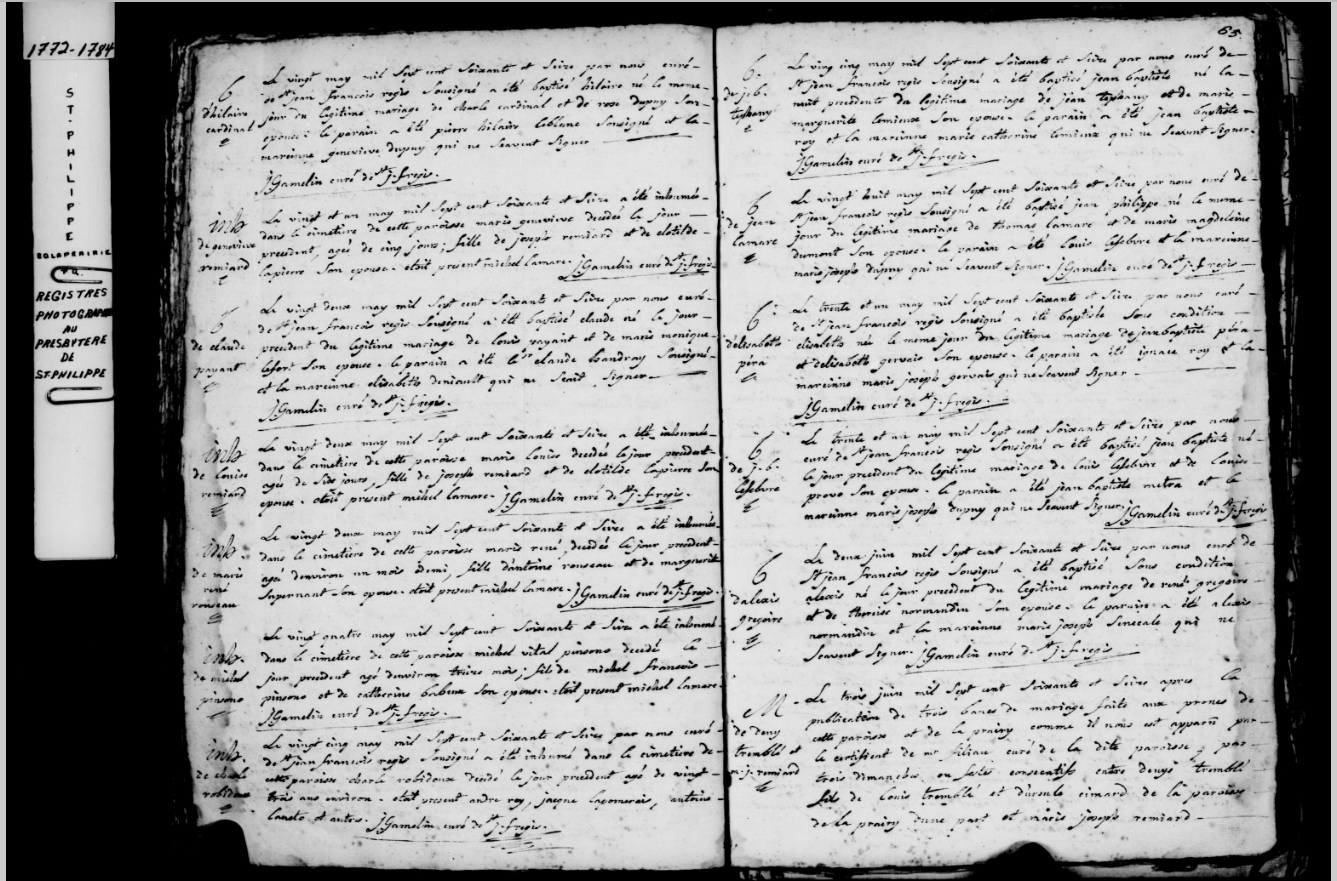 1772-1784
ST-PHILIPPE
REGISTRES
PHOTOGRAPHIÉ
AU
PRESBYTERE
DE
ST-PHILIPPE
6
d'hilaire
cardinal
Le vingt may mil Sept cent Soixante et Seize par nous curé-
de St jean francois regis Sousigné a été baptisé hilaire né le meme-
jour du legitime mariage de charle cardinal et de rose dupuy Son-
epouse. le parain a été pierre hilaire leblanc Sousigné et la-
marainne genevieve dupuy qui ne Scavent Signer
J Gamelin curé de St j. f regis.
inh
de genevieve
remiard
Le vingt et un may mil Sept cent Soixante et Seize a été inhumée-
dans le cimetiere de cette paroisse marie genevieve decedée le jour
precedent, agée de cinq jours; fille de joseph remiard et de clotilde-
lapierre Son epouse. etoit present michel lamare. J Gamelin curé de St j. f regis
6
de claude
payant
Le vingt deux may mil Sept cent Soixante et Seize par nous curé-
de St jean francois regis Sousigné a été baptisé claude né le jour-
precedent du legitime mariage de Louis payant et de marie monique-
lefort Son epouse. le parain a été le Sr claude Sousigné-
et la marainne elisabeth deniault qui ne Scait Signer
J Gamelin curé de St j. f regis.
inh
de Louise
remiard
Le vingt deux may mil Sept cent Soixante et Seize a été inhumée-
dans le cimetiere de cette paroisse marie Louise decedée le jour precedent-
agé de Six jours, fille de joseph remiard et de clotilde Lapierre Son
epouse. etoit present michel lamare. J Gamelin curé de St j. f regis.
inh.
de marie
rené
rousseau
Le vingt deux may mil Sept cent Soixante et Seize a été inhumée-
dans le cimetiere de cette paroisse marie rené, decedée le jour precedent-
agé denviron un mois et demi, fille d'antoine rousseau et de marguerit
Supernant Son epouse. etoit present michel lamare. J Gamelin curé de St j. f regis.
inh.
de michel
pinsono
Le vingt quatre may mil Sept cent Soixante et Seize a été inhumé-
dans le cimetiere de cette paroisse michel vital pinsono decedé le
jour precedent agé denviron treize mois; fils de michel francois
pinsono et de catherine babeux Son epouse. etoit present michel lamare.
J Gamelin curé de St j. f regis.
inh.
de charle
robidoux
Le vingt cinq may mil Sept cent Soixante et Seize par nous curé-
de St jean francois regis Sousigné a été inhumé dans le cimetiere de-
cette paroisse charle robidoux decedé le jour precedent agé de vingt-
trois ans environ. etoit present andre roy, jacque lapomeraie, antoine
et autres. J Gamelin curé de St j. f regis.
65
6.
de j. b.
tephany
Le ving cinq may mil Sept cent Soixante et Seize par nous curé de-
St jean francois regis Sousigné a été baptisé jean baptiste né la-
nuit precedente du legitime mariage de jean tephany et de marie-
marguerite lemieux Son epouse. le parain a été jean baptiste-
roy et la marainne marie catherine lemieux qui ne Scavent Signer.
J Gamelin curé de St j. f regis.
6
de jean
lamare
Le vingt huit may mil Sept cent Soixante et Seize par nous curé de-
St jean francois regis Sousigné a été baptisé jean philippe né le meme-
jour du legitime mariage de thomas lamare et de marie magdeleine
dumont Son epouse. le parain a été Louis lefebvre et la marainne-
marie joseph dupuy qui ne Scavent Signer. J Gamelin curé de St j. f regis
6.
d'elisabeth
péra
Le trente et un may mil Sept cent Soixante et Seize par nous curé-
de St jean francois regis Sousigné a été baptisée Sous condition-
elisabeth née le meme jour du legitime mariage de jean baptiste péra-
et d'elisabeth gervais Son epouse. le parain a été ignace roy et la-
marainne marie joseph gervais qui ne Scavent Signer.
J Gamelin curé de St j. f regis.
6
de j. b.
lefebvre
Le trente et un may mil Sept cent Soixante et Seize par nous
curé de St jean francois regis Sousigné a été baptisé jean baptiste né-
le jour precedent du legitime mariage de Louis lefebvre et de Louise-
provo Son epouse. le parain a été jean baptiste metra et la
marainne marie joseph dupuy qui ne Scavent Signer. J Gamelin curé de St j. f regis
6
d'alexis
gregoire
Le deux juin mil Sept cent Soixante et Seize par nous curé de
St jean francois regis Sousigné a été baptisé Sous condition
alexis né le jour precedent du legitime mariage de rené gregoire
et de therese normandin Son epouse. le parain a été alexis
normandin et la marainne marie joseph Senecale qui ne
Scavent Signer. J Gamelin curé de St j. f regis
M
de deny
tremblé et
m. j. remiard
Le trois juin mil Sept cent Soixante et Seize apres la
publication de trois bancs de mariage faite aux prones de
cette paroisse et de la prairy comme il nous est apparu par
le certificat de mr filiau curé de la dite paroisse, par
trois dimanches ou fetes consecutifs entre denys tremblé
fils de Louis tremblé et d'ursule cimard de la paroisse
de la prairy d'une part et marie joseph remiard